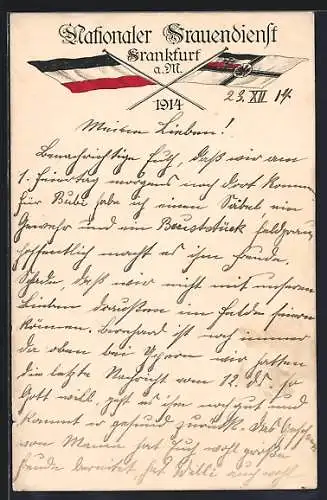 Nationaler Frauendienst
Frankfurt
a. M.
1914
23. XII 14.
Meine Lieben!
Benachrichtige Euch, daß wir am
1. Feiertag morgens nach dort kommen
für Bubi habe ich einen Säbel, ein
Gewehr und ein Bruststück feldgrau
hoffentlich macht es ihm Freude.
Schade, daß wir nicht mit unseren
Lieben draußen im Felde feiern
können. Bernhard ist noch immer
da oben bei Ypern wir hatten
die letzte Nachricht vom 12. ds so
Gott will, geht es ihm noch gut und
kommt er gesund zurück. Das
von Mama hat Euch wohl große
Freude bereitet, hat Willi auch wohl